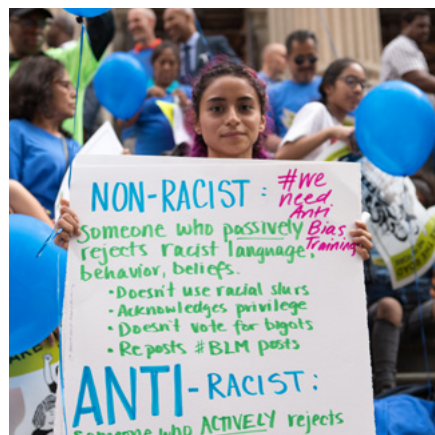 NON-RACIST:
#We
need
Anti
Bias
Training
Someone who passively
rejects racist language,
behavior, beliefs.
• Doesn't use racial slurs
• Acknowledges privilege
• Doesn't vote for bigots
• Reposts #BLM posts
ANTI-RACIST:
Someone who ACTIVELY rejects